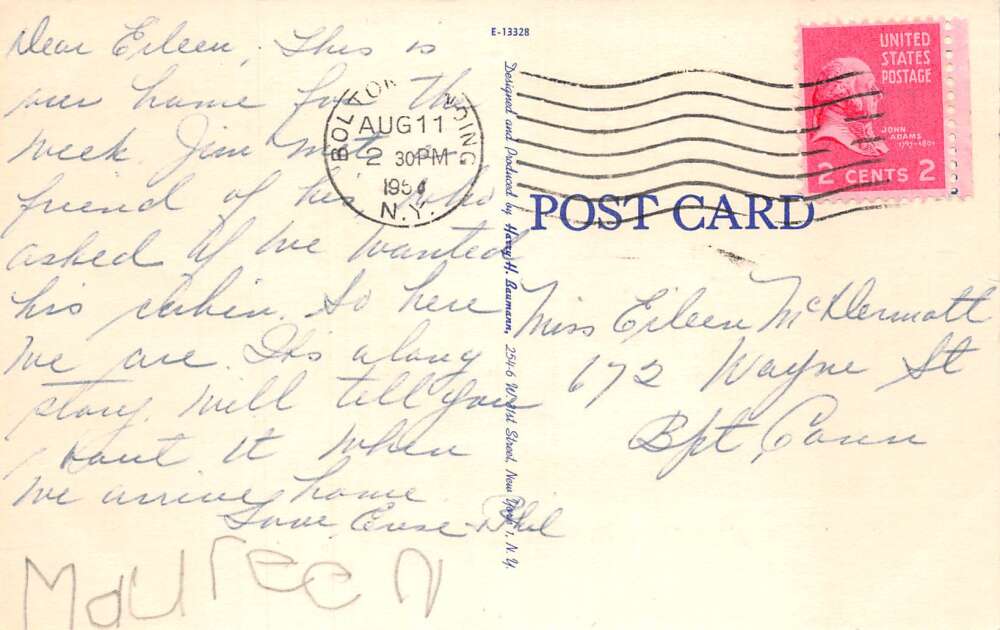 Dear Eileen, This is
our home for the
week. Jim met a
friend of his who
asked if we wanted
his cabin. So here
we are. Its a long
story. Will tell you
bout it when
we arrive home.
Love, Phil
Maureen
E-13328
Designed and Produced by Harry H. Baumann, 254-6 W. 31st Street, New York 1, N. Y.
BOLTON LANDING
AUG 11
2 30PM
195
N.Y.
UNITED
STATES
POSTAGE
JOHN
ADAMS
1797-1801
2 CENTS 2
POST CARD
Miss Eileen McDermott
672 Wayne St
Bpt Conn